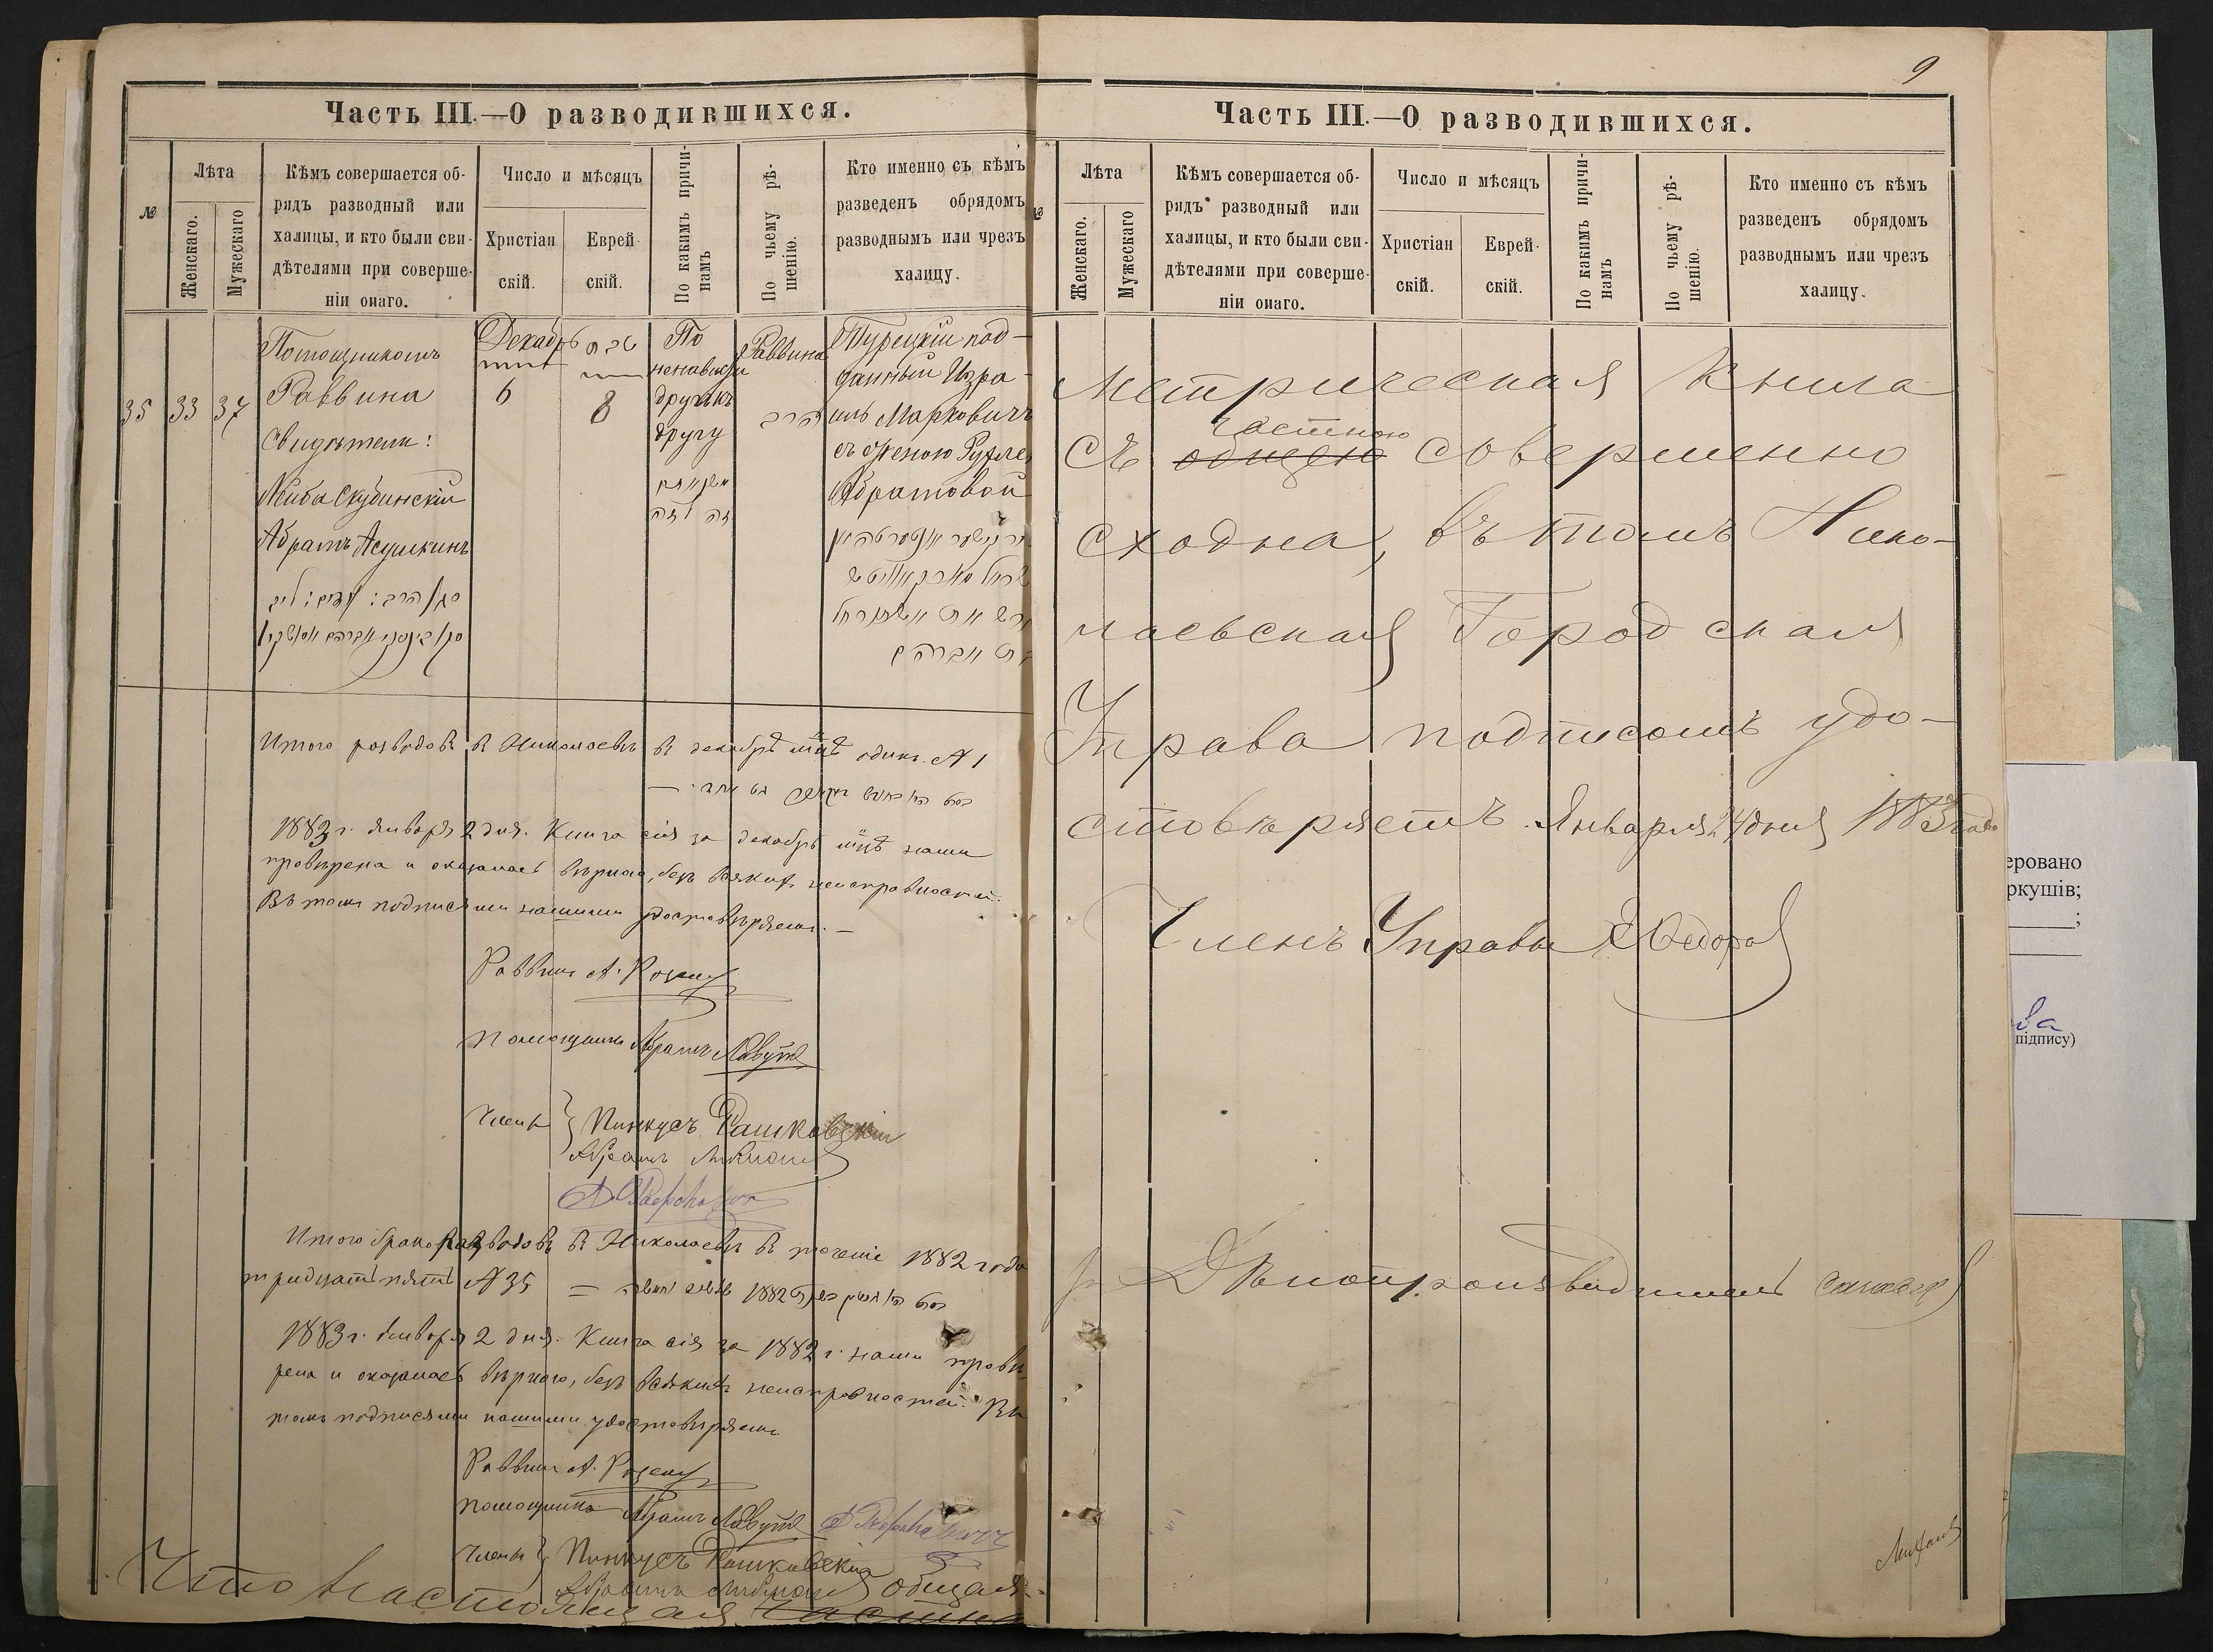 Часть III.—О разводившихся.
№
Лѣта
Женскаго.
Мужескаго
Кѣмъ совершается об-
рядъ разводный или
халицы, и кто были сви-
дѣтелями при соверше-
ніи онаго.
Число и мѣсяцъ
Христіан
скій.
Еврей-
скій.
По какимъ причи-
намъ
По чьему рѣ-
шенію.
Кто именно съ кѣмъ
разведенъ обрядомъ
разводнымъ или чрезъ
халицу.
35
33
37
Помощникомъ
Раввина
Свидѣтели:
Лейба Скубинскій
Абрамъ Асушкинъ
Декабрь
6
טבת
8
По
ненависти
другъ къ
другу
Раввина
הרב
Турецкій под-
данный Изра-
иль Марковичъ
съ женою Рухле
Абрамовой
Итого розводовъ въ Николаевѣ въ декабрѣ мцѣ одинъ. № 1
1883 г. января 2 дня. Книга сія за декабрь мцъ нами
провѣрена и оказалась вѣрною, безъ всякихъ неисправностей.
Въ томъ подписями нашими удостовѣряемъ. —
Раввинъ А. Розенъ
Помощникъ Абрамъ Лавутъ
Члены } Пинкусъ Рашковскій
Абрамъ
Итого бракоразводовъ въ Николаевѣ въ теченіе 1882 года
тридцать пять № 35 — 1882
1883 г. января 2 дня. Книга сія за 1882 г. нами провѣ-
рена и оказалась вѣрною, безъ всякихъ неисправностей. Въ
томъ подписями нашими удостовѣряемъ
Раввинъ А. Розенъ
Помощникъ Абрамъ Лавутъ
Члены } Пинкусъ Рашковскій
Абрамъ
общая
Что настоящая частная
9
Часть III.—О разводившихся.
№
Лѣта
Женскаго.
Мужескаго
Кѣмъ совершается об-
рядъ разводный или
халицы, и кто были сви-
дѣтелями при соверше-
ніи онаго.
Число и мѣсяцъ
Христіан
скій.
Еврей-
скій.
По какимъ причи-
намъ
По чьему рѣ-
шенію.
Кто именно съ кѣмъ
разведенъ обрядомъ
разводнымъ или чрезъ
халицу.
Метрическая книга
частною
съ общею совершенно
сходна, въ томъ Нико-
лаевская Городская
Управа подписомъ удо-
стовѣряетъ. Января 24 дня 1883 года
Членъ Управы Федоров
Дѣлопроизводитель
еровано
ркушів;
;
ва
підпису)